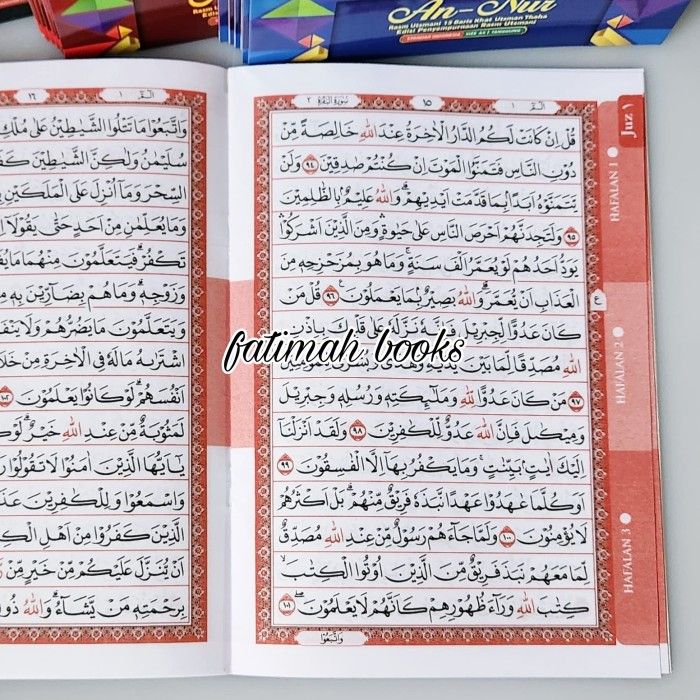 An-Nur
Rasm Utsmani 15 Baris Khat Utsman Thaha
Edisi Penyempurnaan Rasm Utsmani
STANDAR INDONESIA
البقرة ١
١٥
سورة البقرة ٢
Juz 1
قُلْ اِنْ كَانَتْ لَكُمُ الدَّارُ الْاٰخِرَةُ عِنْدَ اللّٰهِ خَالِصَةً مِّنْ
دُوْنِ النَّاسِ فَتَمَنَّوُا الْمَوْتَ اِنْ كُنْتُمْ صٰدِقِيْنَ ٩٤ وَلَنْ
يَّتَمَنَّوْهُ اَبَدًاۢ بِمَا قَدَّمَتْ اَيْدِيْهِمْۗ وَاللّٰهُ عَلِيْمٌۢ بِالظّٰلِمِيْنَ
٩٥ وَلَتَجِدَنَّهُمْ اَحْرَصَ النَّاسِ عَلٰى حَيٰوةٍۛ وَمِنَ الَّذِيْنَ اَشْرَكُوْاۛ
يَوَدُّ اَحَدُهُمْ لَوْ يُعَمَّرُ اَلْفَ سَنَةٍۚ وَمَا هُوَ بِمُزَحْزِحِهٖ مِنَ
الْعَذَابِ اَنْ يُّعَمَّرَۗ وَاللّٰهُ بَصِيْرٌۢ بِمَا يَعْمَلُوْنَ ࣖ ٩٦ قُلْ مَنْ
كَانَ عَدُوًّا لِّجِبْرِيْلَ فَاِنَّهٗ نَزَّلَهٗ عَلٰى قَلْبِكَ بِاِذْنِ
اللّٰهِ مُصَدِّقًا لِّمَا بَيْنَ يَدَيْهِ وَهُدًى وَّبُشْرٰى لِلْمُؤْمِنِيْنَ
٩٧ مَنْ كَانَ عَدُوًّا لِّلّٰهِ وَمَلٰۤىِٕكَتِهٖ وَرُسُلِهٖ وَجِبْرِيْلَ
وَمِيْكٰىلَ فَاِنَّ اللّٰهَ عَدُوٌّ لِّلْكٰفِرِيْنَ ٩٨ وَلَقَدْ اَنْزَلْنَآ
اِلَيْكَ اٰيٰتٍۢ بَيِّنٰتٍۚ وَمَا يَكْفُرُ بِهَآ اِلَّا الْفٰسِقُوْنَ ٩٩
اَوَكُلَّمَا عٰهَدُوْا عَهْدًا نَّبَذَهٗ فَرِيْقٌ مِّنْهُمْۗ بَلْ اَكْثَرُهُمْ
لَا يُؤْمِنُوْنَ ١٠٠ وَلَمَّا جَاۤءَهُمْ رَسُوْلٌ مِّنْ عِنْدِ اللّٰهِ مُصَدِّقٌ
لِّمَا مَعَهُمْ نَبَذَ فَرِيْقٌ مِّنَ الَّذِيْنَ اُوْتُوا الْكِتٰبَۙ
كِتٰبَ اللّٰهِ وَرَاۤءَ ظُهُوْرِهِمْ كَاَنَّهُمْ لَا يَعْلَمُوْنَۖ ١٠١
وَاتَّبَعُوْا
HAFALAN 1
ع
HAFALAN 2
HAFALAN 3
البقرة ١
١٦
وَاتَّبَعُوْا مَا تَتْلُوا الشَّيٰطِيْنُ عَلٰى مُلْكِ
سُلَيْمٰنَ وَلٰكِنَّ الشَّيٰطِيْنَ
السِّحْرَ وَمَآ اُنْزِلَ عَلَى الْمَلَكَيْنِ
وَمَا يُعَلِّمٰنِ مِنْ اَحَدٍ حَتّٰى يَقُوْلَآ
تَكْفُرْۗ فَيَتَعَلَّمُوْنَ مِنْهُمَا مَا
وَزَوْجِهٖۗ وَمَا هُمْ بِضَاۤرِّيْنَ بِهٖ
وَيَتَعَلَّمُوْنَ مَا يَضُرُّهُمْ وَلَا
اشْتَرٰىهُ مَا لَهٗ فِى الْاٰخِرَةِ مِنْ
اَنْفُسَهُمْۗ لَوْ كَانُوْا يَعْلَمُوْنَ ١٠٢
لَمَثُوْبَةٌ مِّنْ عِنْدِ اللّٰهِ خَيْرٌۗ
يٰٓاَيُّهَا الَّذِيْنَ اٰمَنُوْا لَا تَقُوْلُوْا
وَاسْمَعُوْاۗ وَلِلْكٰفِرِيْنَ
الَّذِيْنَ كَفَرُوْا مِنْ اَهْلِ
اَنْ يُّنَزَّلَ عَلَيْكُمْ مِّنْ خَيْرٍ مِّنْ
بِرَحْمَتِهٖ مَنْ يَّشَاۤءُۗ وَاللّٰهُ
fatimah books